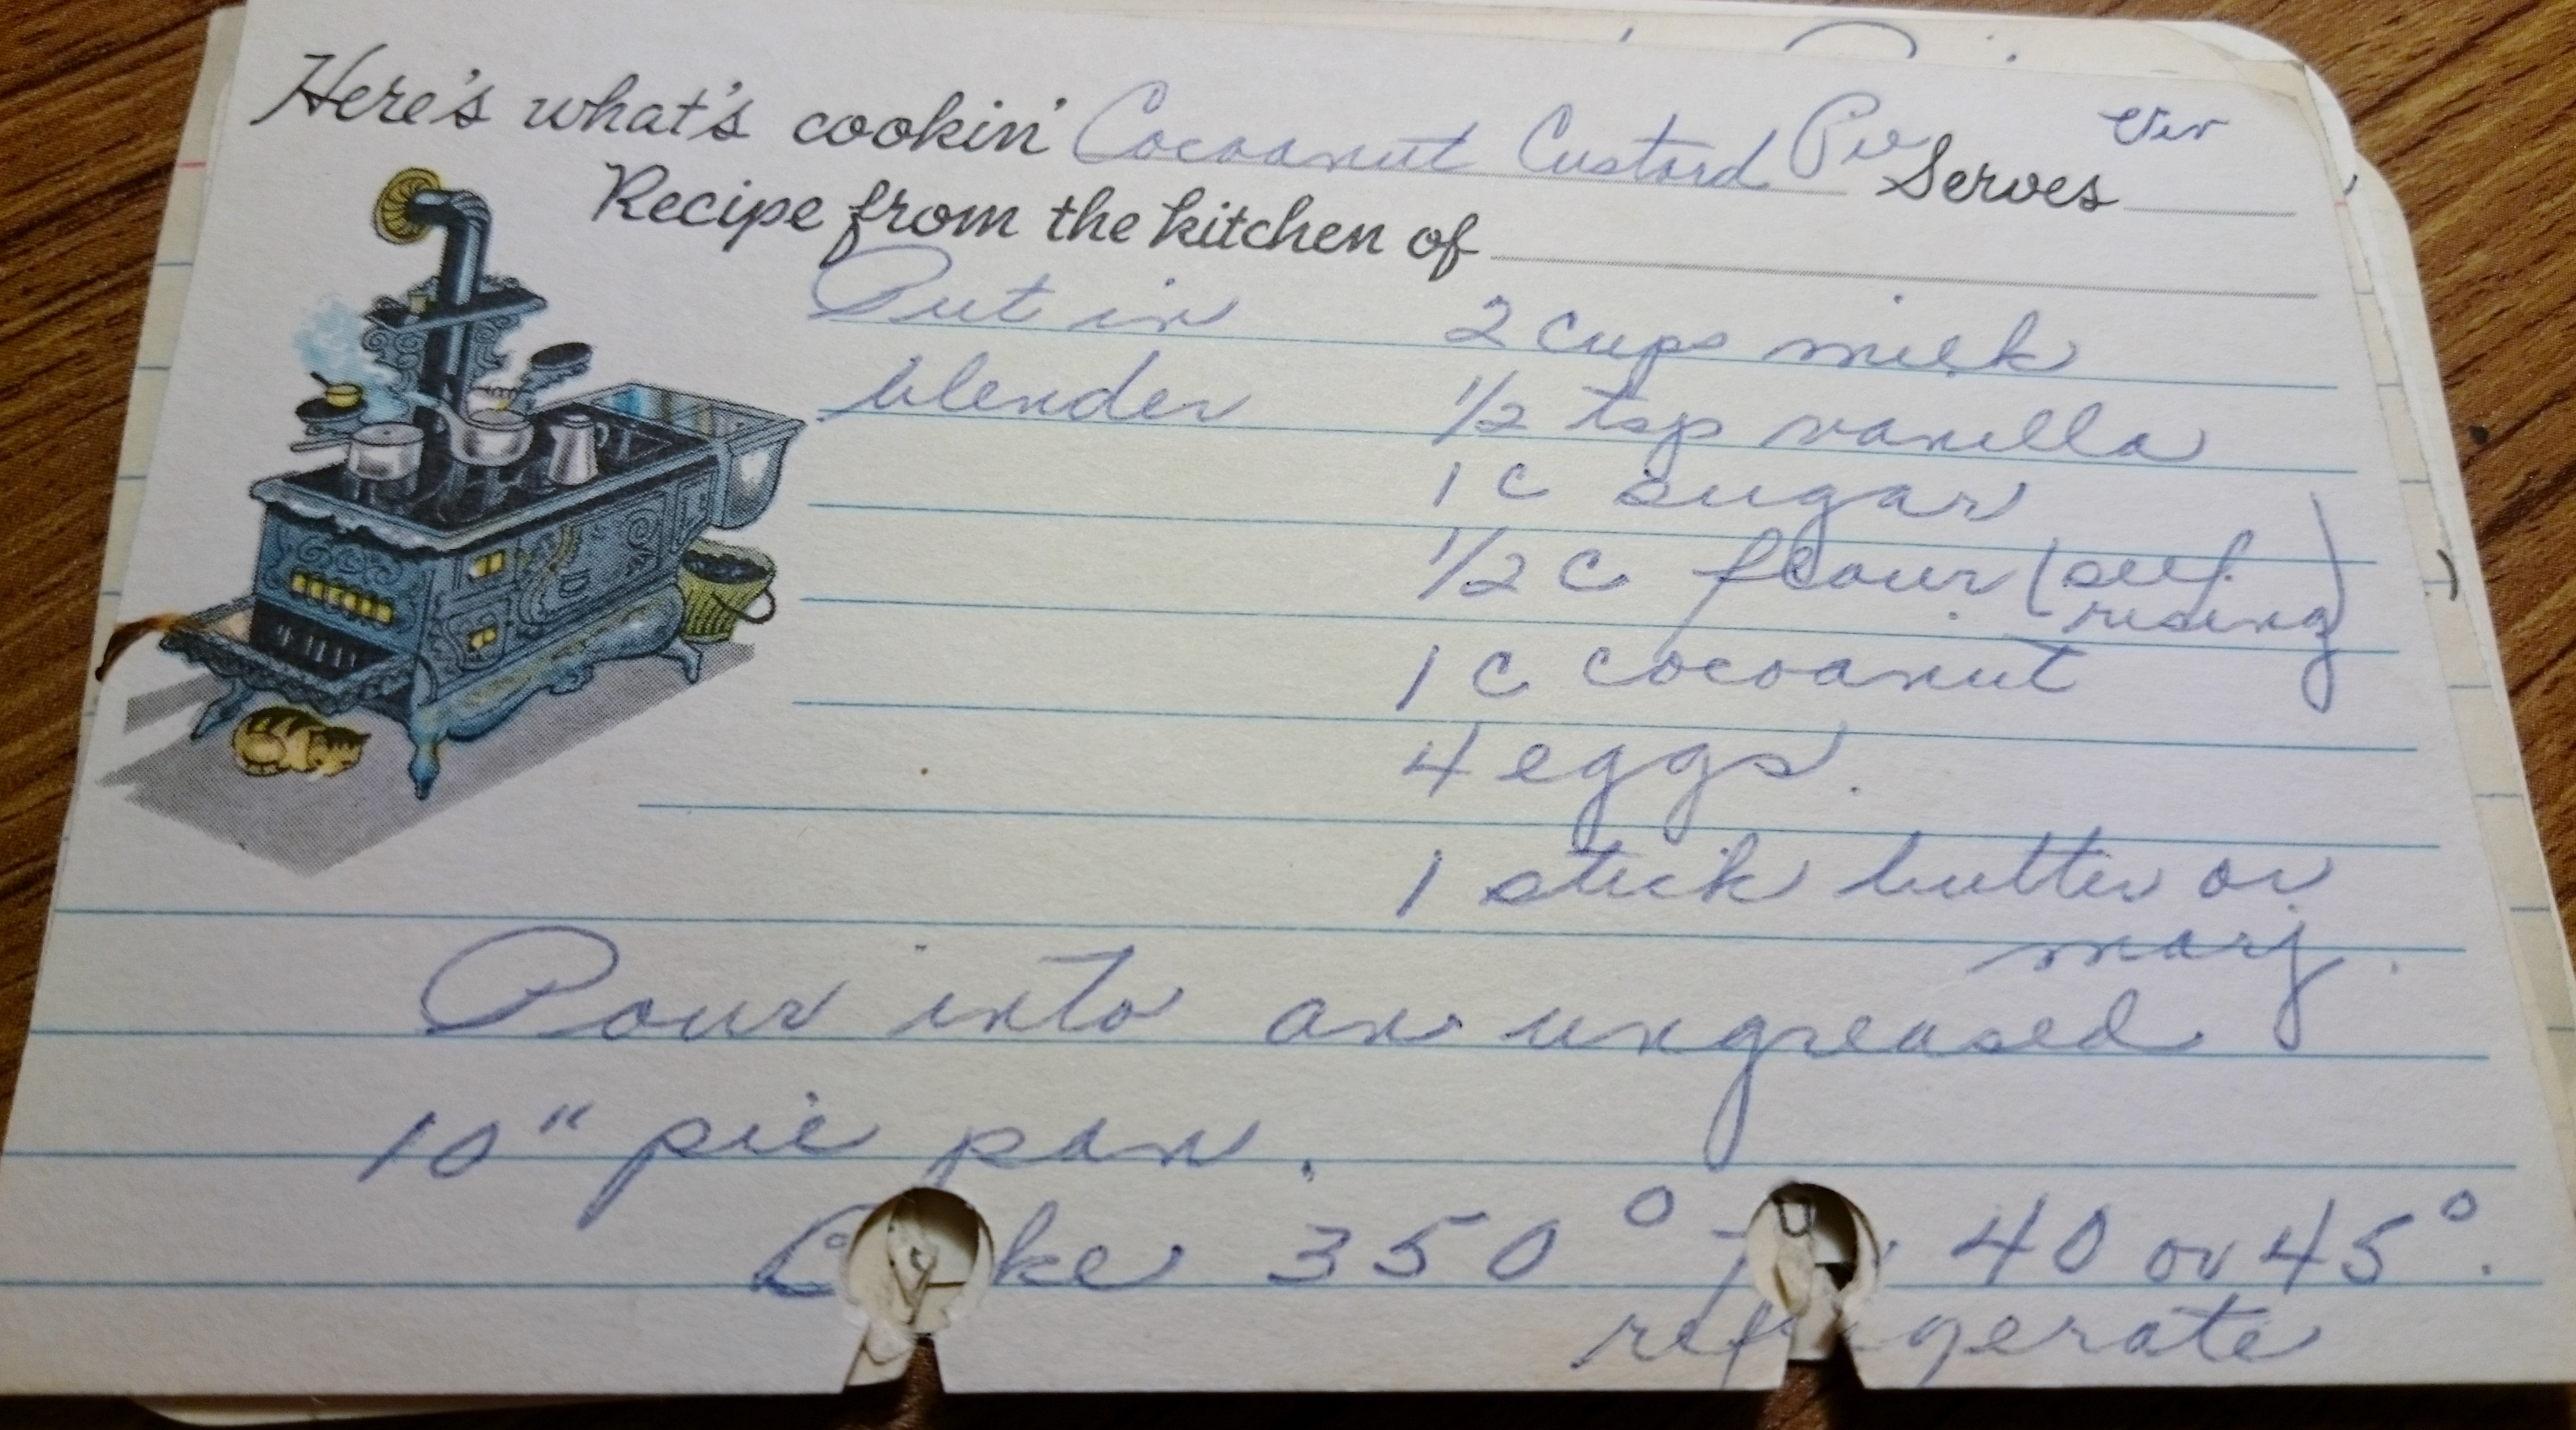 Here's what's cookin' Cocoanut Custard Pie Serves
Recipe from the kitchen of
Put in 2 cups milk
blender 1/2 tsp vanilla
1 c sugar
1/2 c flour (self
rising)
1 c cocoanut
4 eggs.
1 stick butter or
marj.
Pour into an ungreased
10" pie pan.
Bake 350° for 40 or 45°.
refrigerate